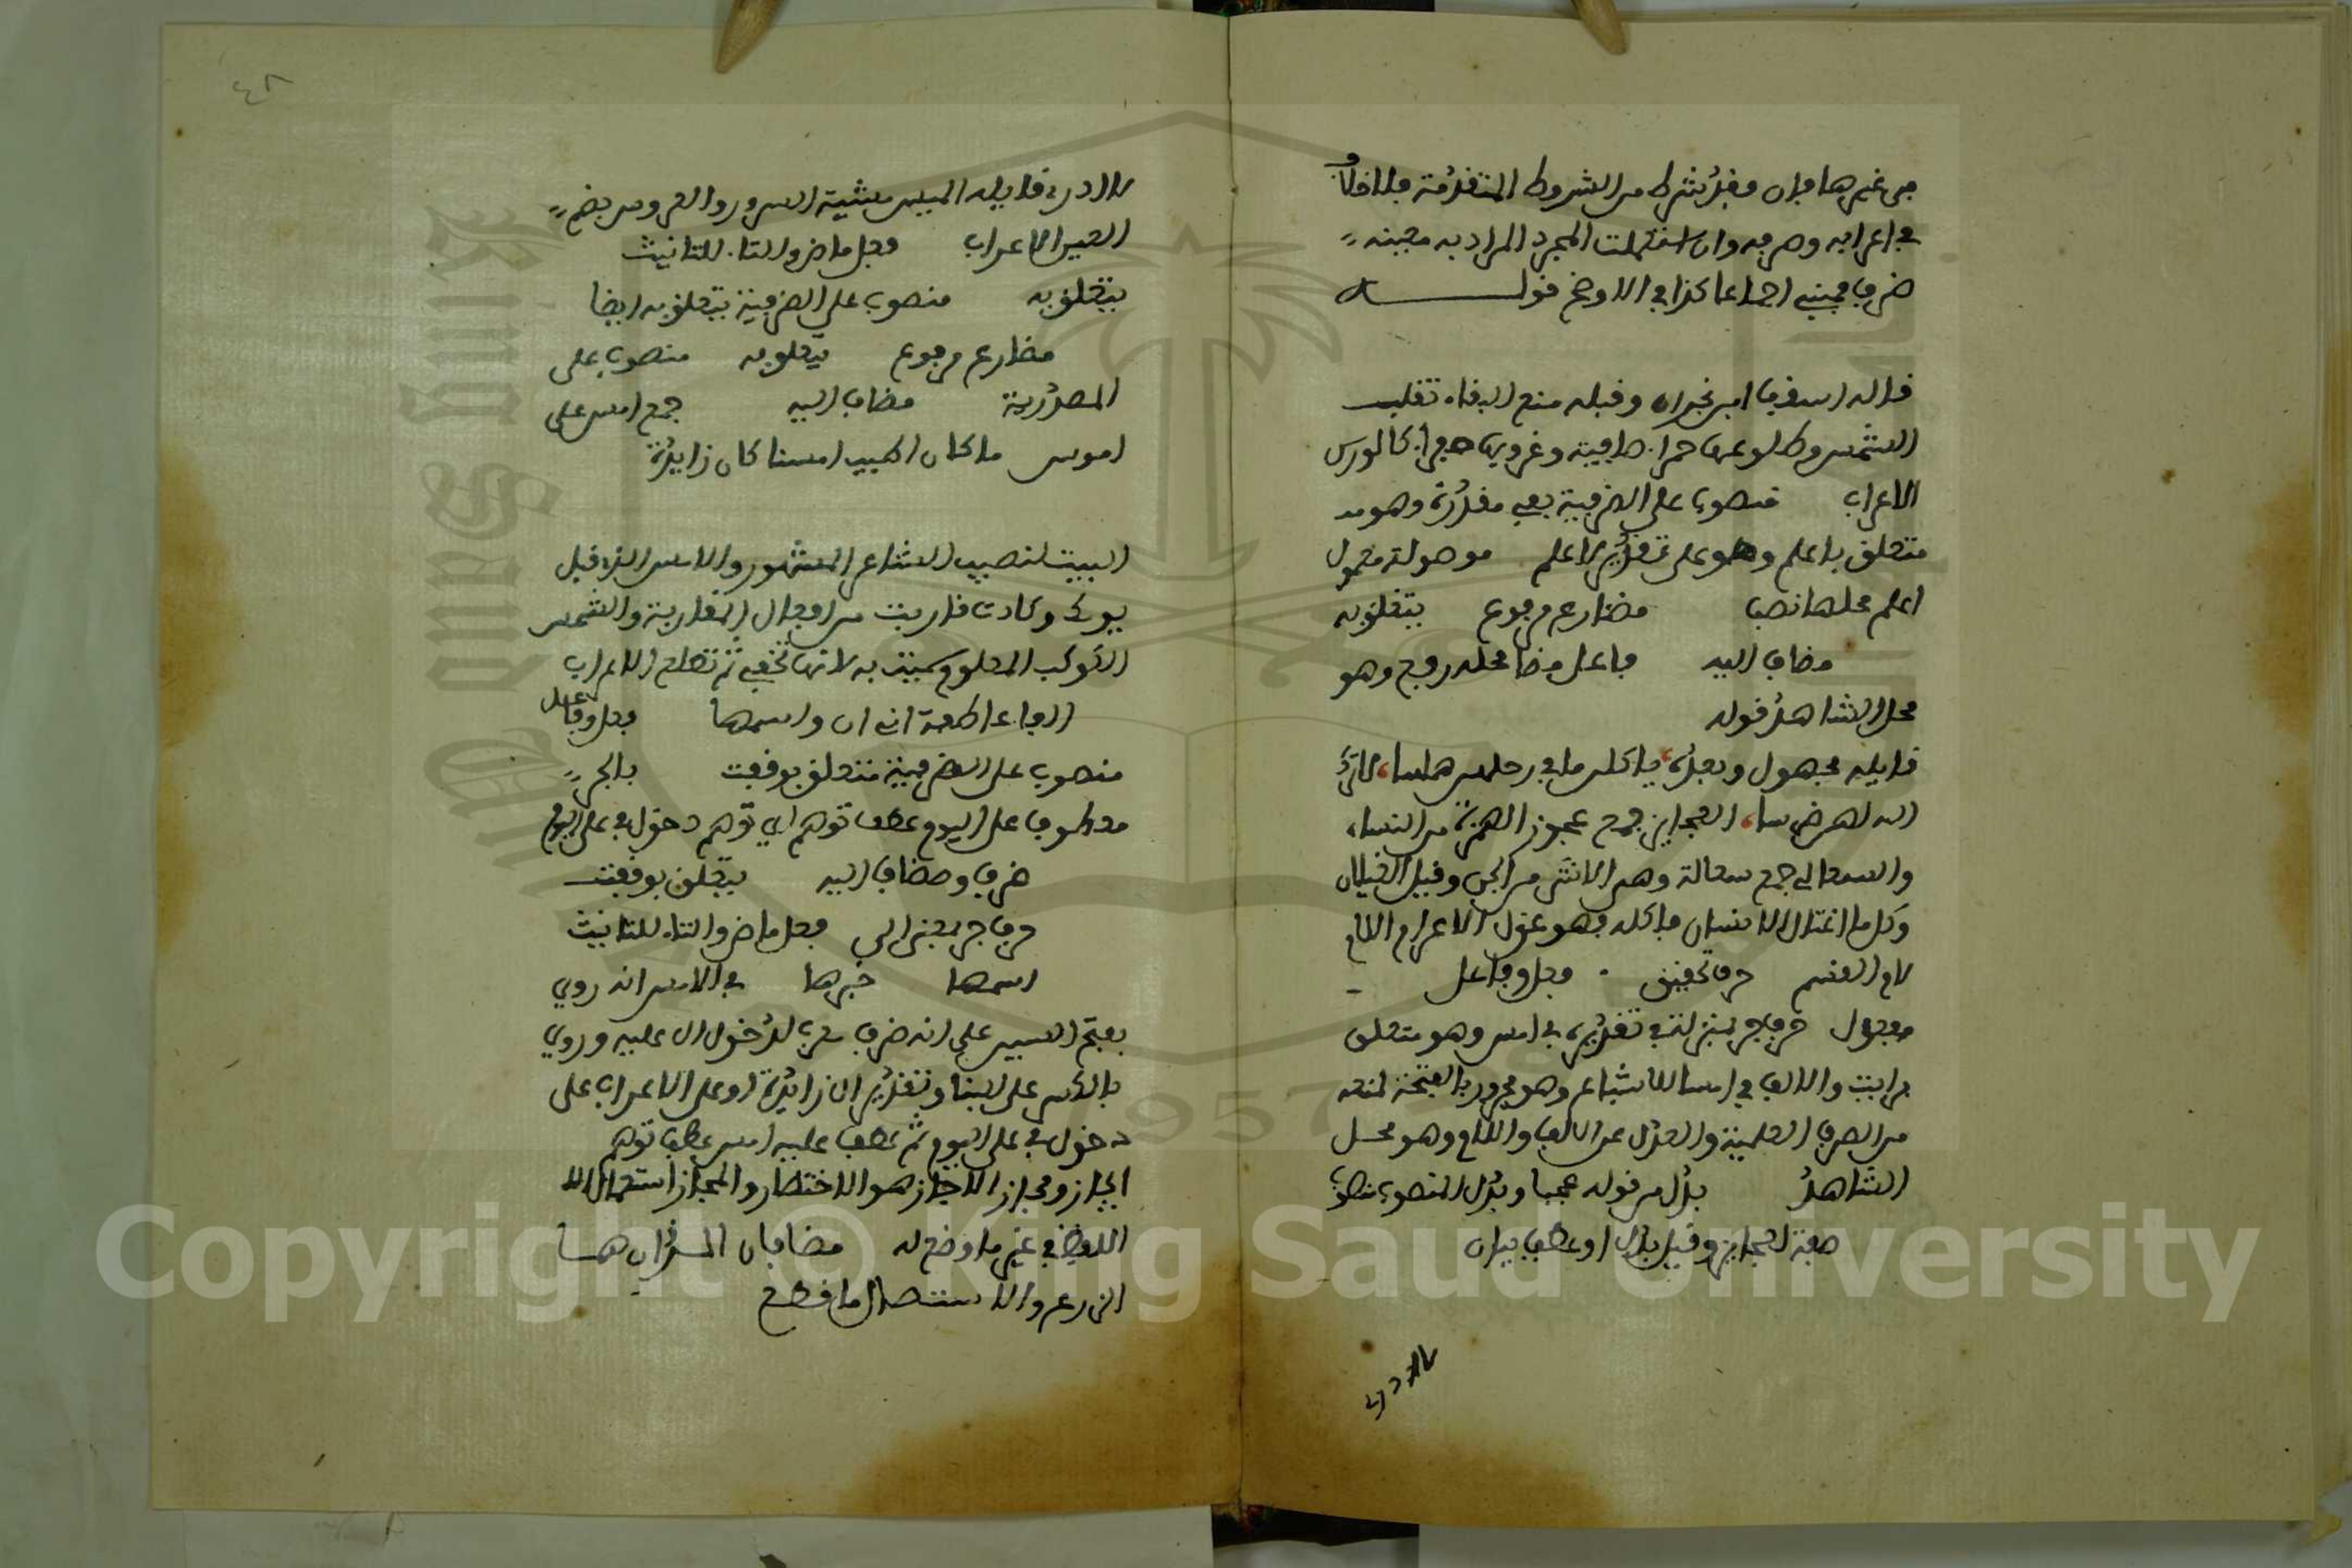 من غيرها فان فقد شرط من الشروط المتقدمة فلا خلاف
في اعرابه وصرفه وان استعملت المجرد المراد به معينه
ظرف فمبني اجماعا كذا في الاوضح قولـــــه
قاله اسقف ابن نجران وقبله منع البقاء تقلب
الشمس وطلوعها حمرا صافية وغروبها صفرا كالورس
الاعراب منصوب على الظرفية بفي مقدرة وهو
متعلق باعلم وهو على تقدير لا علم موصولة معمول
اعلم محلها نصب مضارع مرفوع يتعلق به
مضاف اليه فاعل مضا محله رفع وهو
محل الشاهد قوله
قايله مجهول وبعده ياكلن ما في رحلهن همسا لا ترك
الله لهن ضرسا العجايز جمع عجوز الهرمة من النساء
والسعالي جمع سعالة وهي الانثى من الجن وقيل الغيلان
وكل ما اغتال الانسان فاكله فهو غول الاعراب اللام
لام القسم حرف تحقيق فعل وفاعل
مفعول حرف جر بمنزلة في تقديره في امس وهو متعلق
برايت والالف في امسا للاشباع وهو مجرور بالفتحة لمنعه
من الصرف العلمية والعدل عن الالف واللام وهو محل
الشاهد بدل من قوله عجبا وبدل المنصوب منصوب
صفة لعجايز وقيل بدل او عطف بيان
لا ادري
٤٨
لا ادري قايله الميس مشية السرور والعروس بضم
العين الاعراب فعل ماض والتاء للتانيث
يتعلق به منصوب على الظرفية يتعلق به ايضا
مضارع مرفوع يتعلق به منصوب على
المصدرية مضاف اليه جمع امس على
اموس ما كان اطيب امسنا كان زايدة
البيت لنصيب الشاعر المشهور والامس الذي قبل
يومك وكادت قاربت من افعال المقاربة والشمس
الكوكب المعلوم سميت به لانها تخفى ثم تطلع الاعراب
الفا عاطفة اني ان واسمها فعل وفاعل
منصوب على الظرفية متعلق بوقفت بالجر
معطوف على اليوم عطف توهم اي توهم دخول في على اليوم
ظرف ومضاف اليه يتعلق بوقفت
حرف جر بمعنى الى فعل ماض والتاء للتانيث
اسمها خبرها في الامس انه روي
بفتح السين على انه ظرف معرب لدخول ال عليه وروي
بالكسر على البنا وتقدير ال زايدة او على الاعراب على
دخول في على اليوم ثم عطف عليه امس عطف توهم
ايجاز ومجاز الايجاز هو الاختصار والمجاز استعمال
اللفظ في غير ما وضع له مضافان
الزرع والاستئصال ما قطع
Copyright © King Saud University
1957